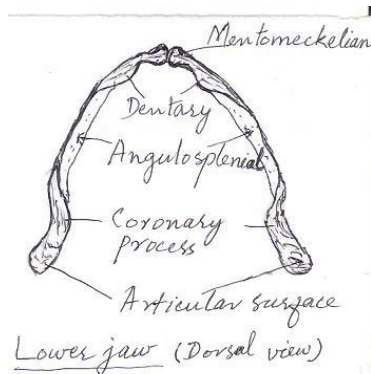 Mentomeckelian
Dentary
Angulosplenial
Coronary
process
Articular surface
Lower jaw (Dorsal view)